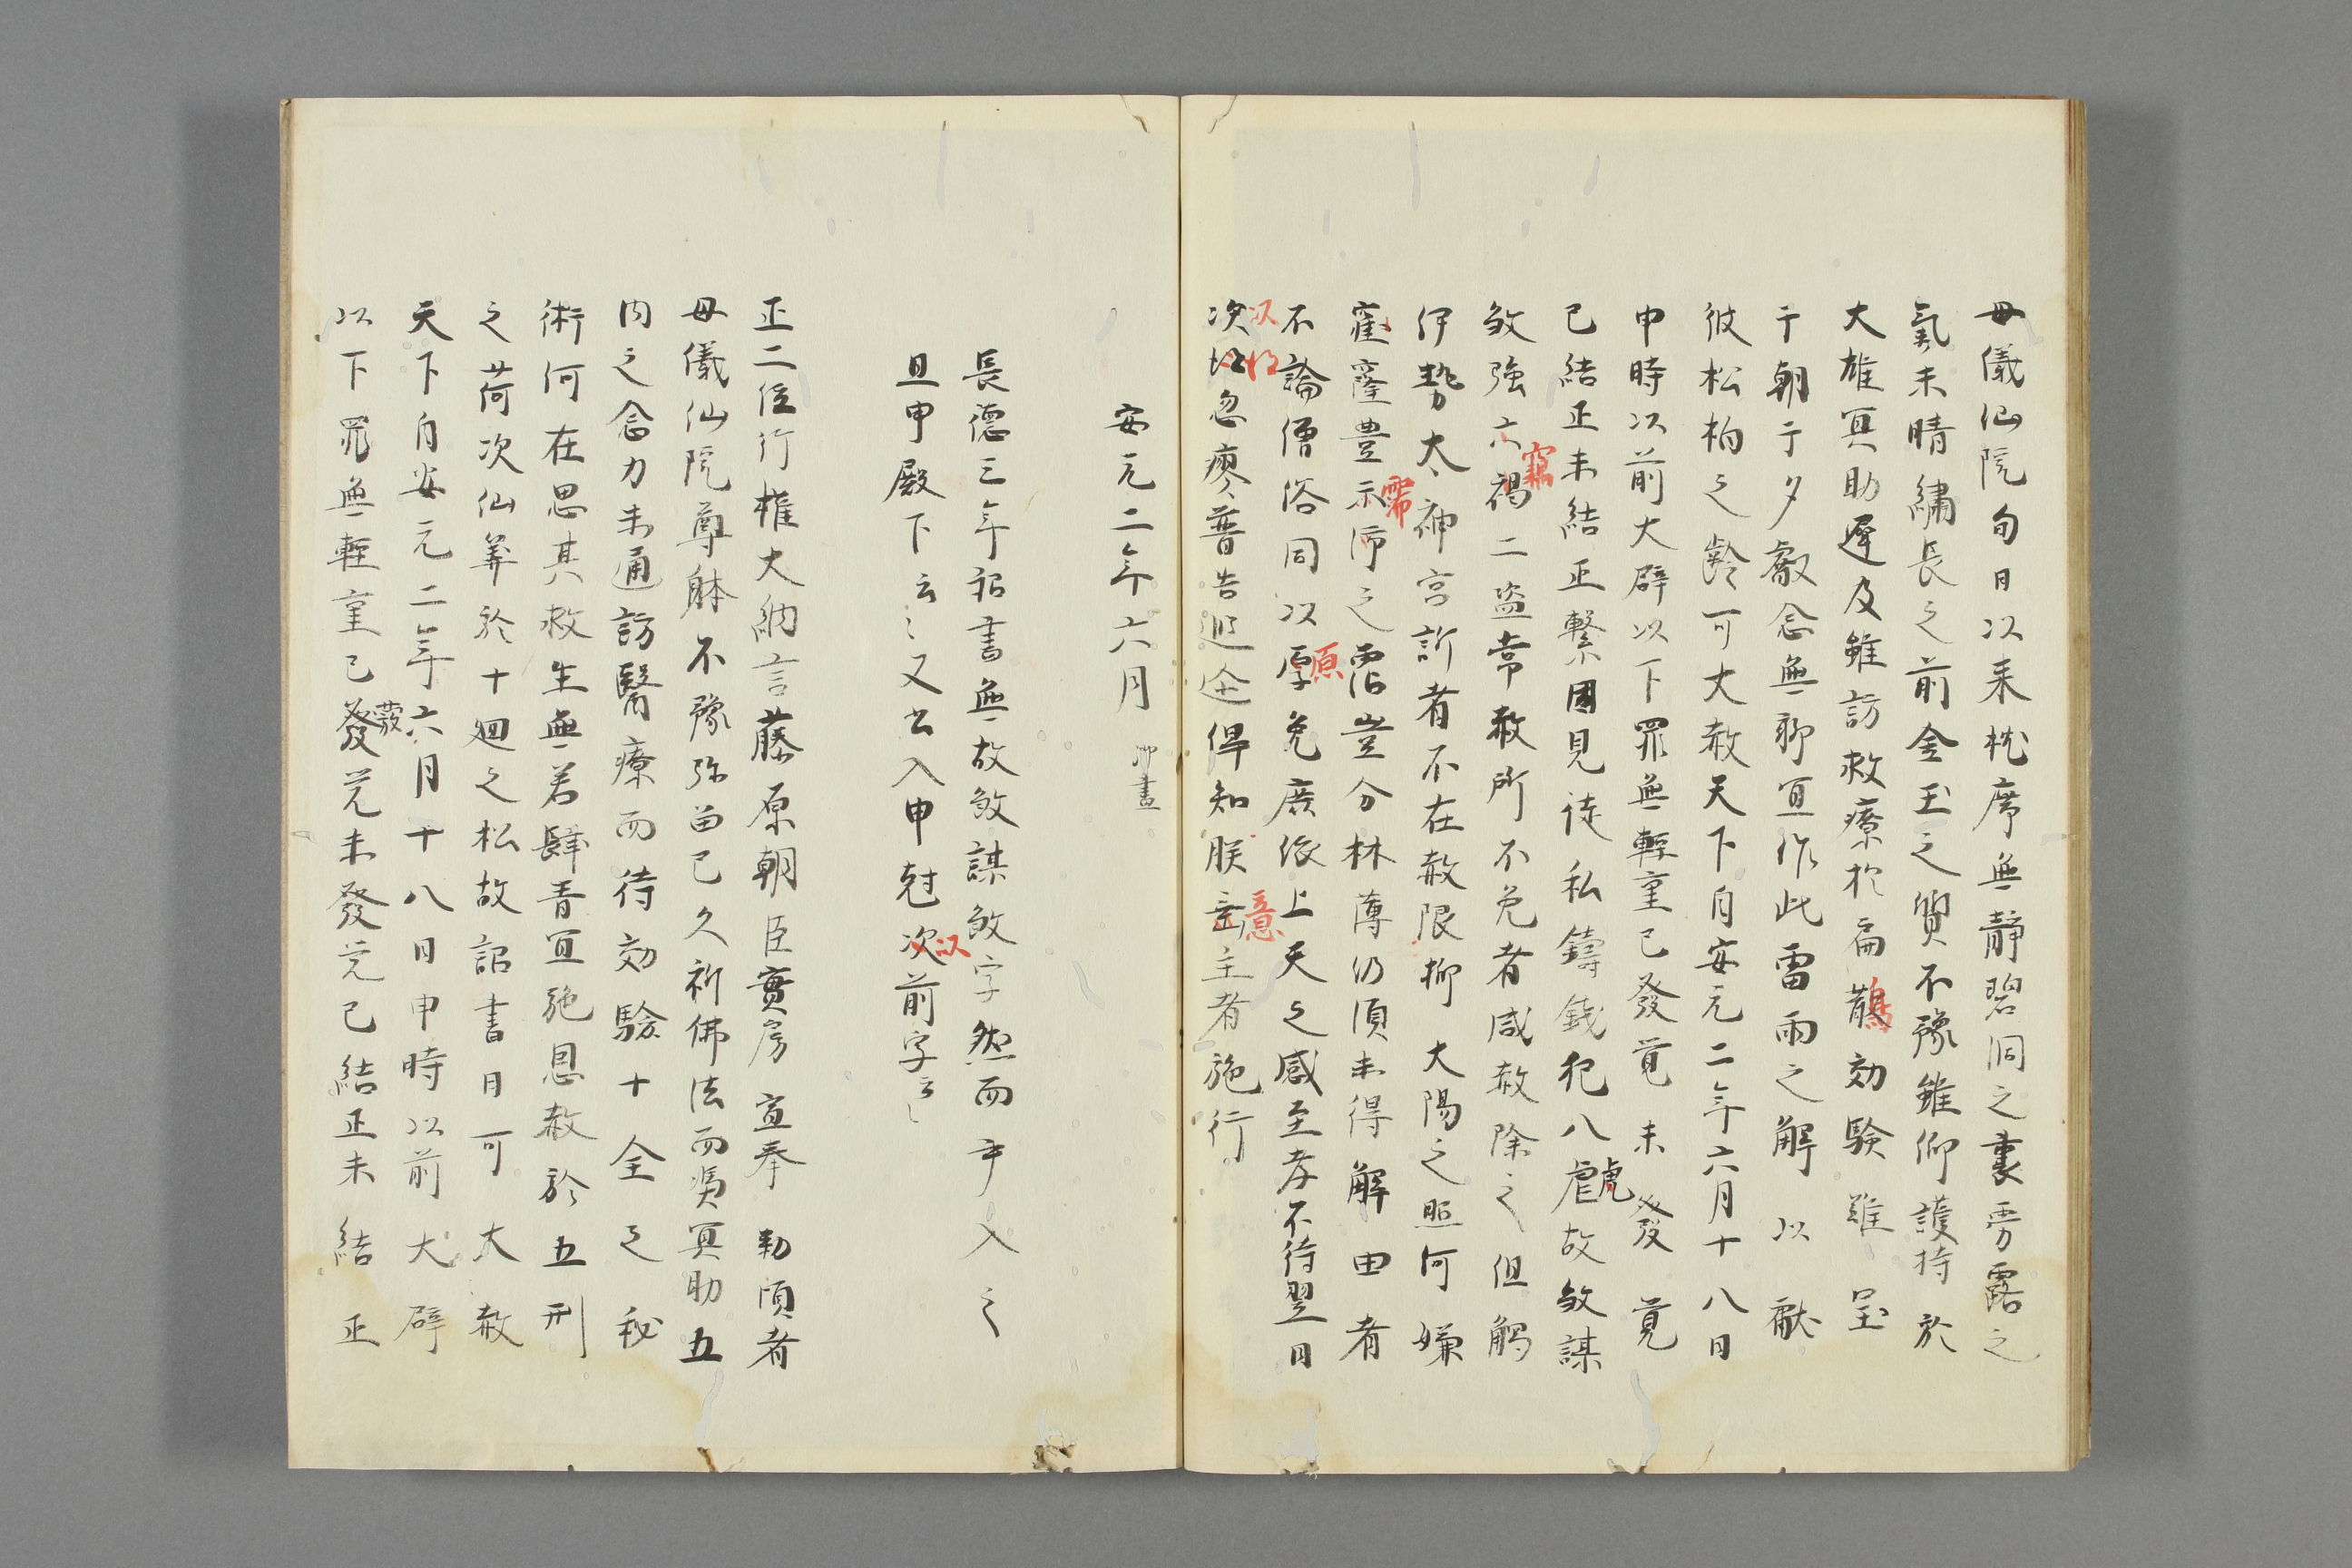 母儀仙院旬日以来枕席無静碧洞之裏雰露之
氣未晴繍長之前金玉之質不豫雖仰護持於
大雄冥助遅及雖訪救療於扁鵲効験難呈
于朝于夕叡念無聊宜作此雷雨之解以献
彼松柏之齢可大赦天下自安元二年六月十八日
申時以前大辟以下罪無軽重已發覚未發覚
已結正未結正繋囚見徒私鋳銭犯八虐故殺謀
殺強竊二盗常赦所不免者咸赦除之但觸
伊勢太神宮訴者不在赦限抑大陽之照何嫌
窪窿豊示霈之霑豈分林薄仍須未得解由者
不論僧俗同以原免庶依上天之感至孝不待翌日
次以忽廖普告遐迩俾知朕意主者施行
安元二年六月 御畫
長徳三年詔書無故殺謀殺字然而予入之
且申殿下云々又云入申尅以前字云々
正二位行権大納言藤原朝臣實房宣奉勅頃者
母儀仙院尊躰不豫弥留已久祈佛法而贖冥助五
内之念力未通訪醫療而待効驗十全之秘
術何在思其救生無若肆眚宜施恩赦於五刑
之荷次仙筭於十廻之松故詔書日可大赦
天下自安元二年六月十八日申時以前大辟
以下罪無軽重已發覚未發覚已結正未結正